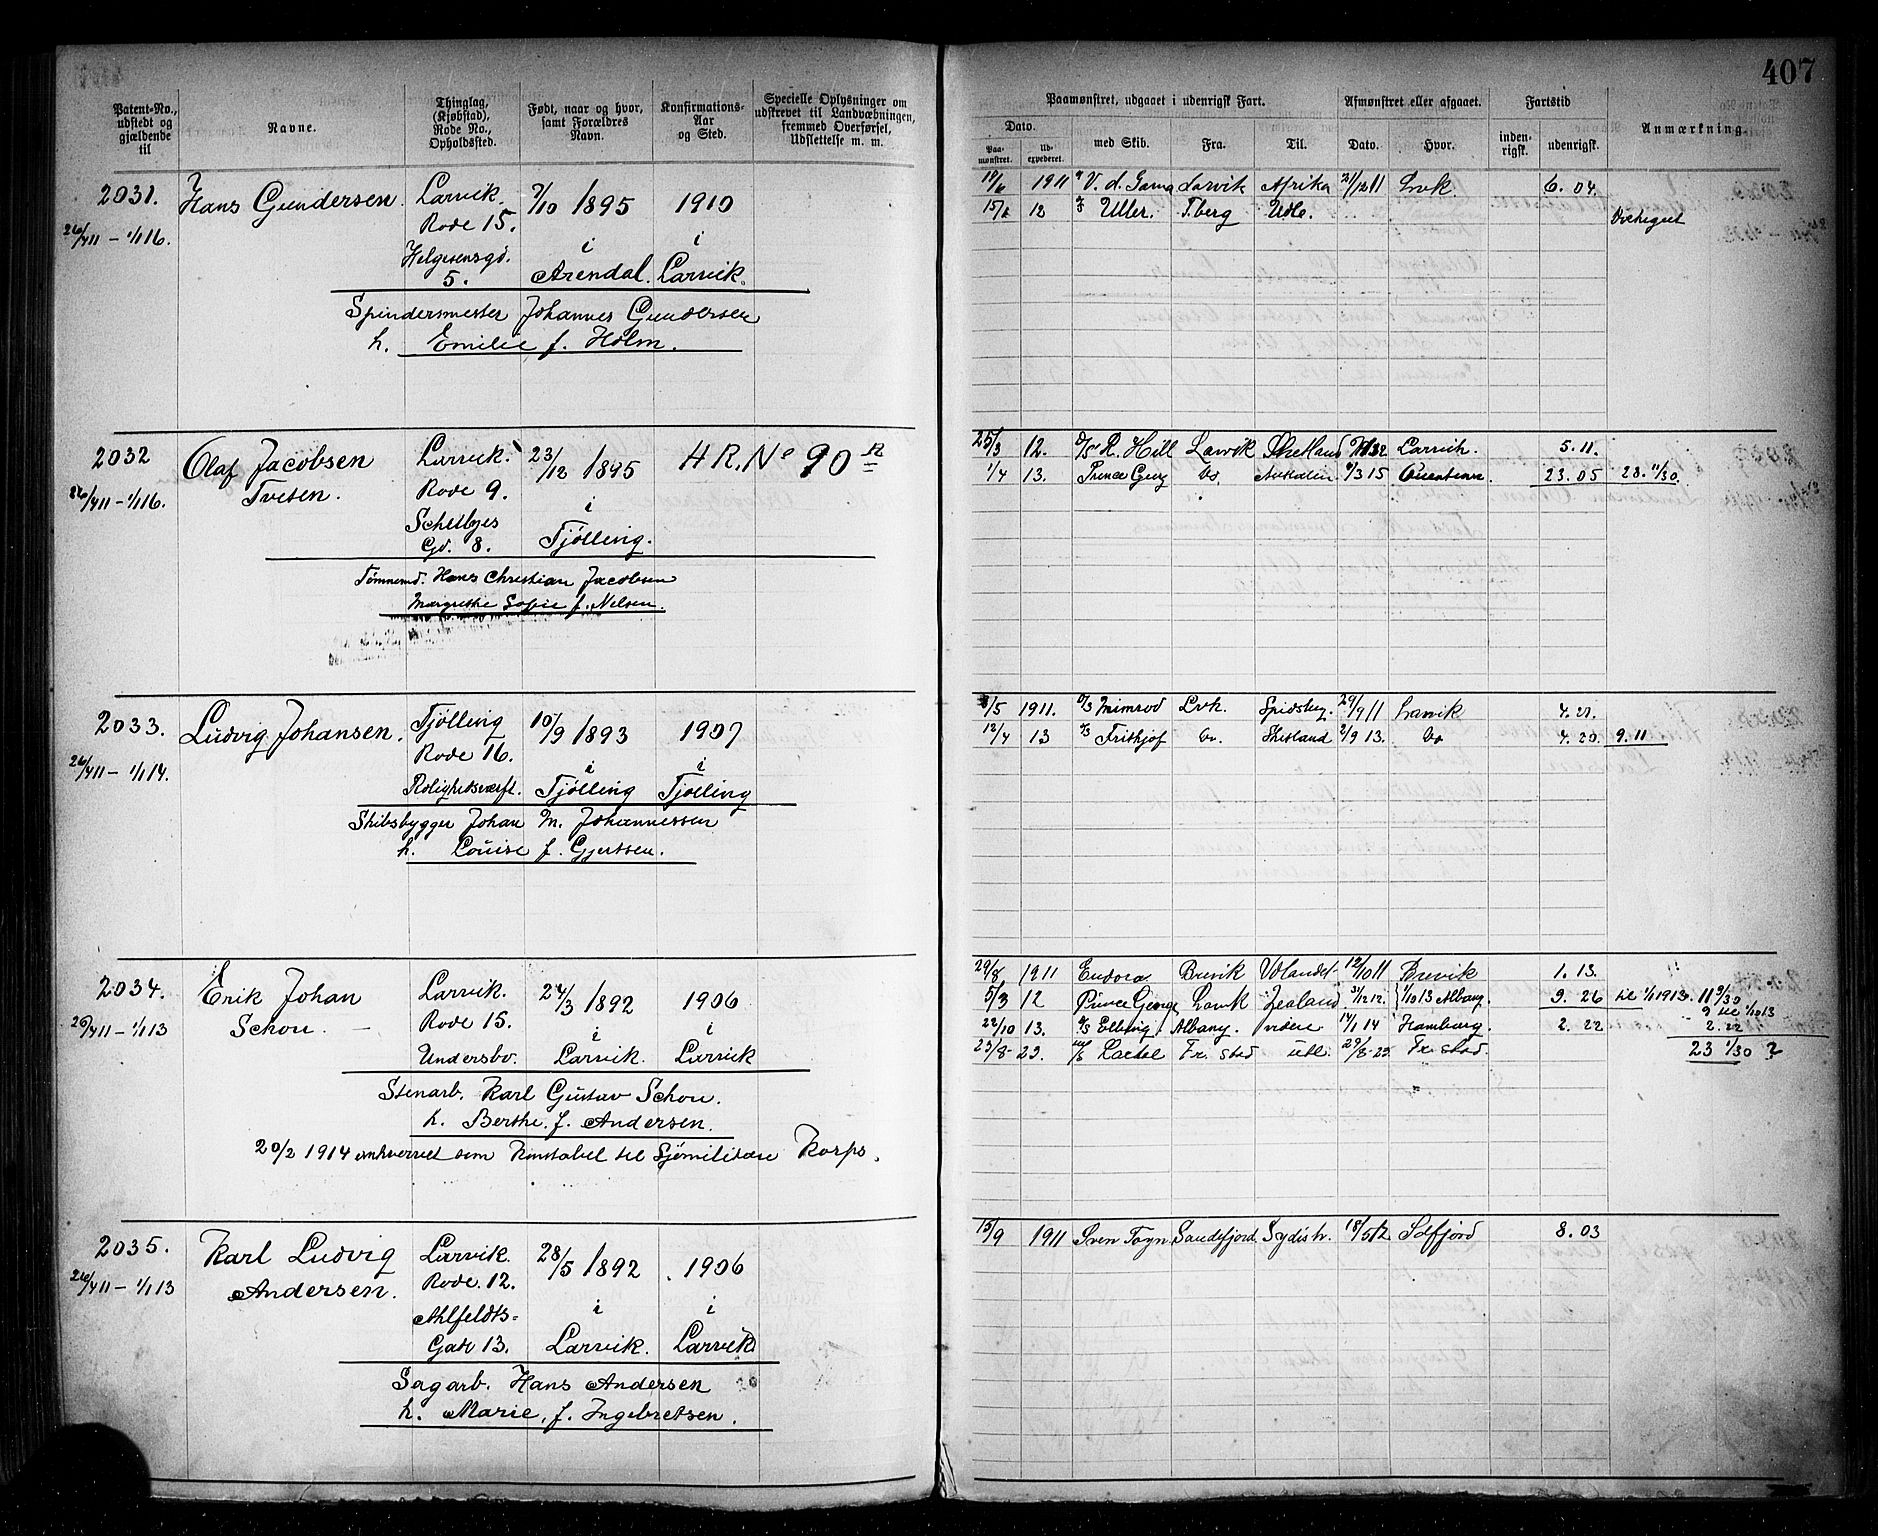 407
Patent-No., udstedt og gjældende til
Navne.
Thinglag, (Kjøbstad), Rode No., Opholdssted.
Født, naar og hvor, samt Forældres Navn.
Konfirmations-Aar og Sted.
Specielle Oplysninger om udskrevet til Landvæbningen, fremmed Overførsel, Udslettelse m. m.
Paamønstret, udgaaet i udenrigsk Fart.
Afmønstret eller afgaaet.
Fartstid
Anmærkning.
Dato.
Paa-mønstret.
Ud-expederet.
med Skib.
Fra.
Til.
Dato.
Hvor.
inden-rigsk.
udenrigsk.
2031. Hans Gundersen. Larvik. 7/10 1895 1910
26/4 11 – 1/1 16. Rode 15. i i
Helgesensgd. 5. Arendal. Larvik.
Spindermester Johannes Gundersen
h. Emilie f. Holm.
19/6 1911 V. d. Gama Larvik Afrika 21/12 11 Lrvk 6. 04
12 Uller. T.berg Udl.
2032 Olaf Jacobsen Larvik. 23/12 1895 A R. No 90
26/4 11 – 1/1 16. Tvesen. Rode 9. i
Schelbyes Gd. 8. Tjølling.
Tømmermd. Hans Christian Jacobsen
Margrethe Sofie f. Nelsen.
25/3 12. R. Hill Larvik Shetland Larvik. 5. 11.
1/4 13. Prince Georg Do. 9/3 15 23. 05 28. 11/30.
2033. Ludvig Johansen. Tjølling 10/9 1893 1907
26/4 11 – 1/1 14. Rode 16. i i
Rolighedsværft. Tjølling Tjølling
Skibsbygger Johan M. Johannessen
h. Louise f. Gjertsen.
8/5 1911. Nimrod Lvk. Spidsbg. 29/9 11 Larvik 4. 21.
12/4 13 Frithjof Do. Shetland 2/9 13. Do 4. 20. 9. 11
2034. Erik Johan Larvik. 24/3 1892 1906
26/4 11 – 1/1 13 Schou. – Rode 15. i i
Undersbo. Larvik. Larvik
Stenarb. Karl Gustav Schou.
h. Berthe. f. Andersen.
20/2 1914 indhvervet som Konstabel til Sjømilitære Korps.
29/8 1911 Eudora Brevik Udlandet 12/10 11 Brevik 1. 13.
5/3 12 Prince George Larvik Zealand 31/12 12. 1/10 13 Albany. 9. 26 til 1/1 1913. 11 9/30
9 til 1/10 13
22/10 13. Ellwig. Albany. videre 14/1 14 Hamburg. 2. 22 2. 22
23/8 – 23. Fr. stad utl. 29/8-23. Fr. stad. 23 1/30 ?
2035. Karl Ludvig Larvik. 28/5 1892 1906
26/4 11 – 1/1 13 Andersen. Rode. 12. i i
Ahlfeldts-Gade 13. Larvik. Larvik
Sagarb. Hans Andersen
h. Marie, f. Ingebretsen.
15/9 1911 Sven Foyn Sandefjord Sydish. 18/5 12 Sdfjord 8. 03